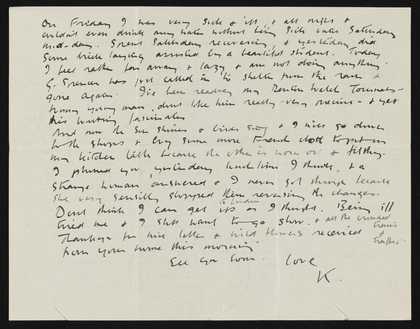 On Friday I was very sick & ill, & all night &
couldn't even drink any water without being sick until Saturday
mid-day. Spent Saturday recovering & yesterday did
some brick laying assisted by a beautiful student. Today
I feel rather far away & lazy & am not doing anything.
G. Spencer has just called in to shelter from the rain &
gone again. I've been reading my Denton Welch Journals -
funny young man, don't like him really - very precious - & yet
his writing fascinates
And now the sun shines & birds sing & I must go down
to the shops & buy some more French cloth to put on
my kitchen table because the other is worn out & filthy.
I phoned you, yesterday lunch time I think, & a
strange woman answered & I never got through because
she very sensibly stopped them reversing the charges.
Don't think I can get to London it's as I thinks. Being ill
tired me & I still want to go slow, & all the crowded trains
& traffic.
Thankyou for nice letter & wild flowers received
from your nurse this morning
See you soon. love
K.